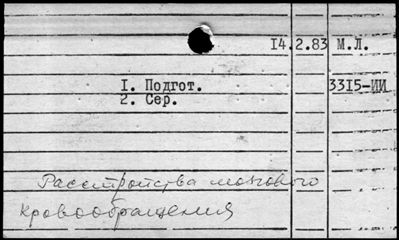 14.2.83 М.Л.
1. Подгот. 3315-ИИ
2. Сер.
Расстройства мозгового
кровообращения